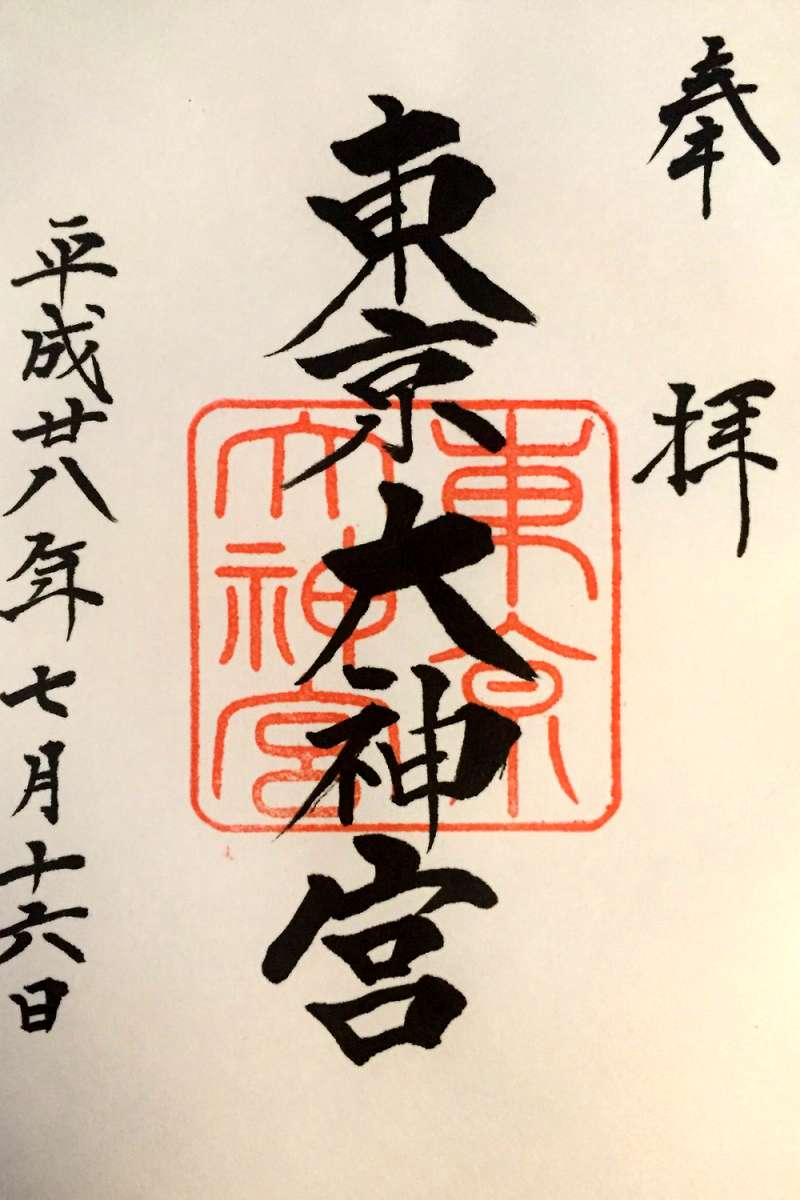 奉拝
東京大神宮
東京
大神宮
平成廿八年七月十六日